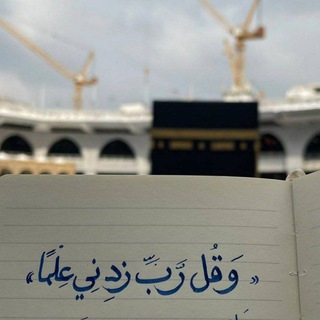 « وَقُل رَّبِّ زِدْنِي عِلْمًا »